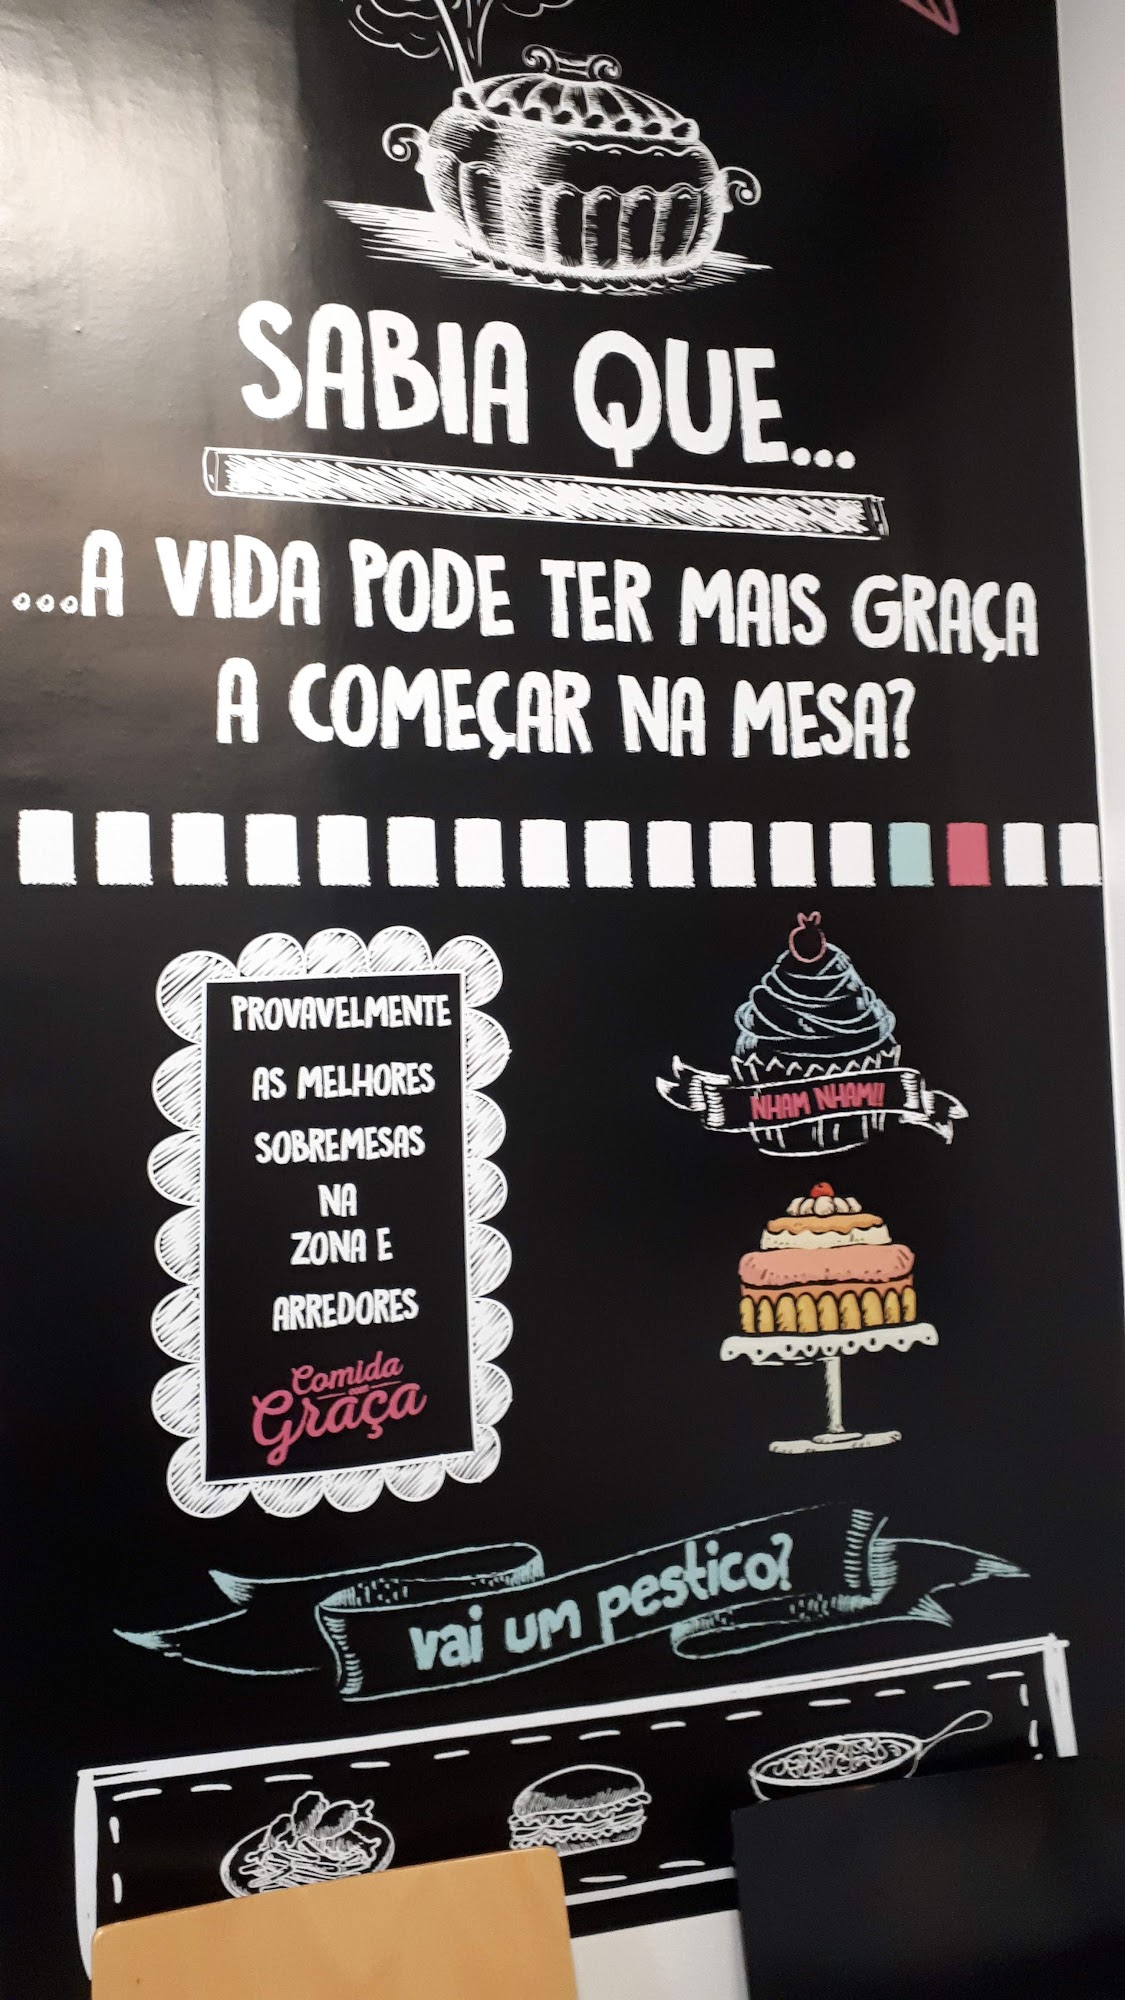 SABIA QUE...
...A VIDA PODE TER MAIS GRAÇA
A COMEÇAR NA MESA?
PROVAVELMENTE
AS MELHORES
SOBREMESAS
NA
ZONA E
ARREDORES
Comida
com
Graça
NHAM NHAM!!
vai um pestico?